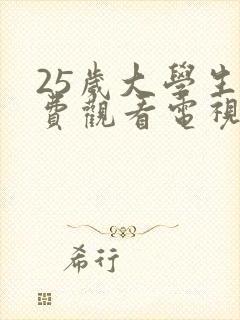 25歲大學生
費觀看電視
希行